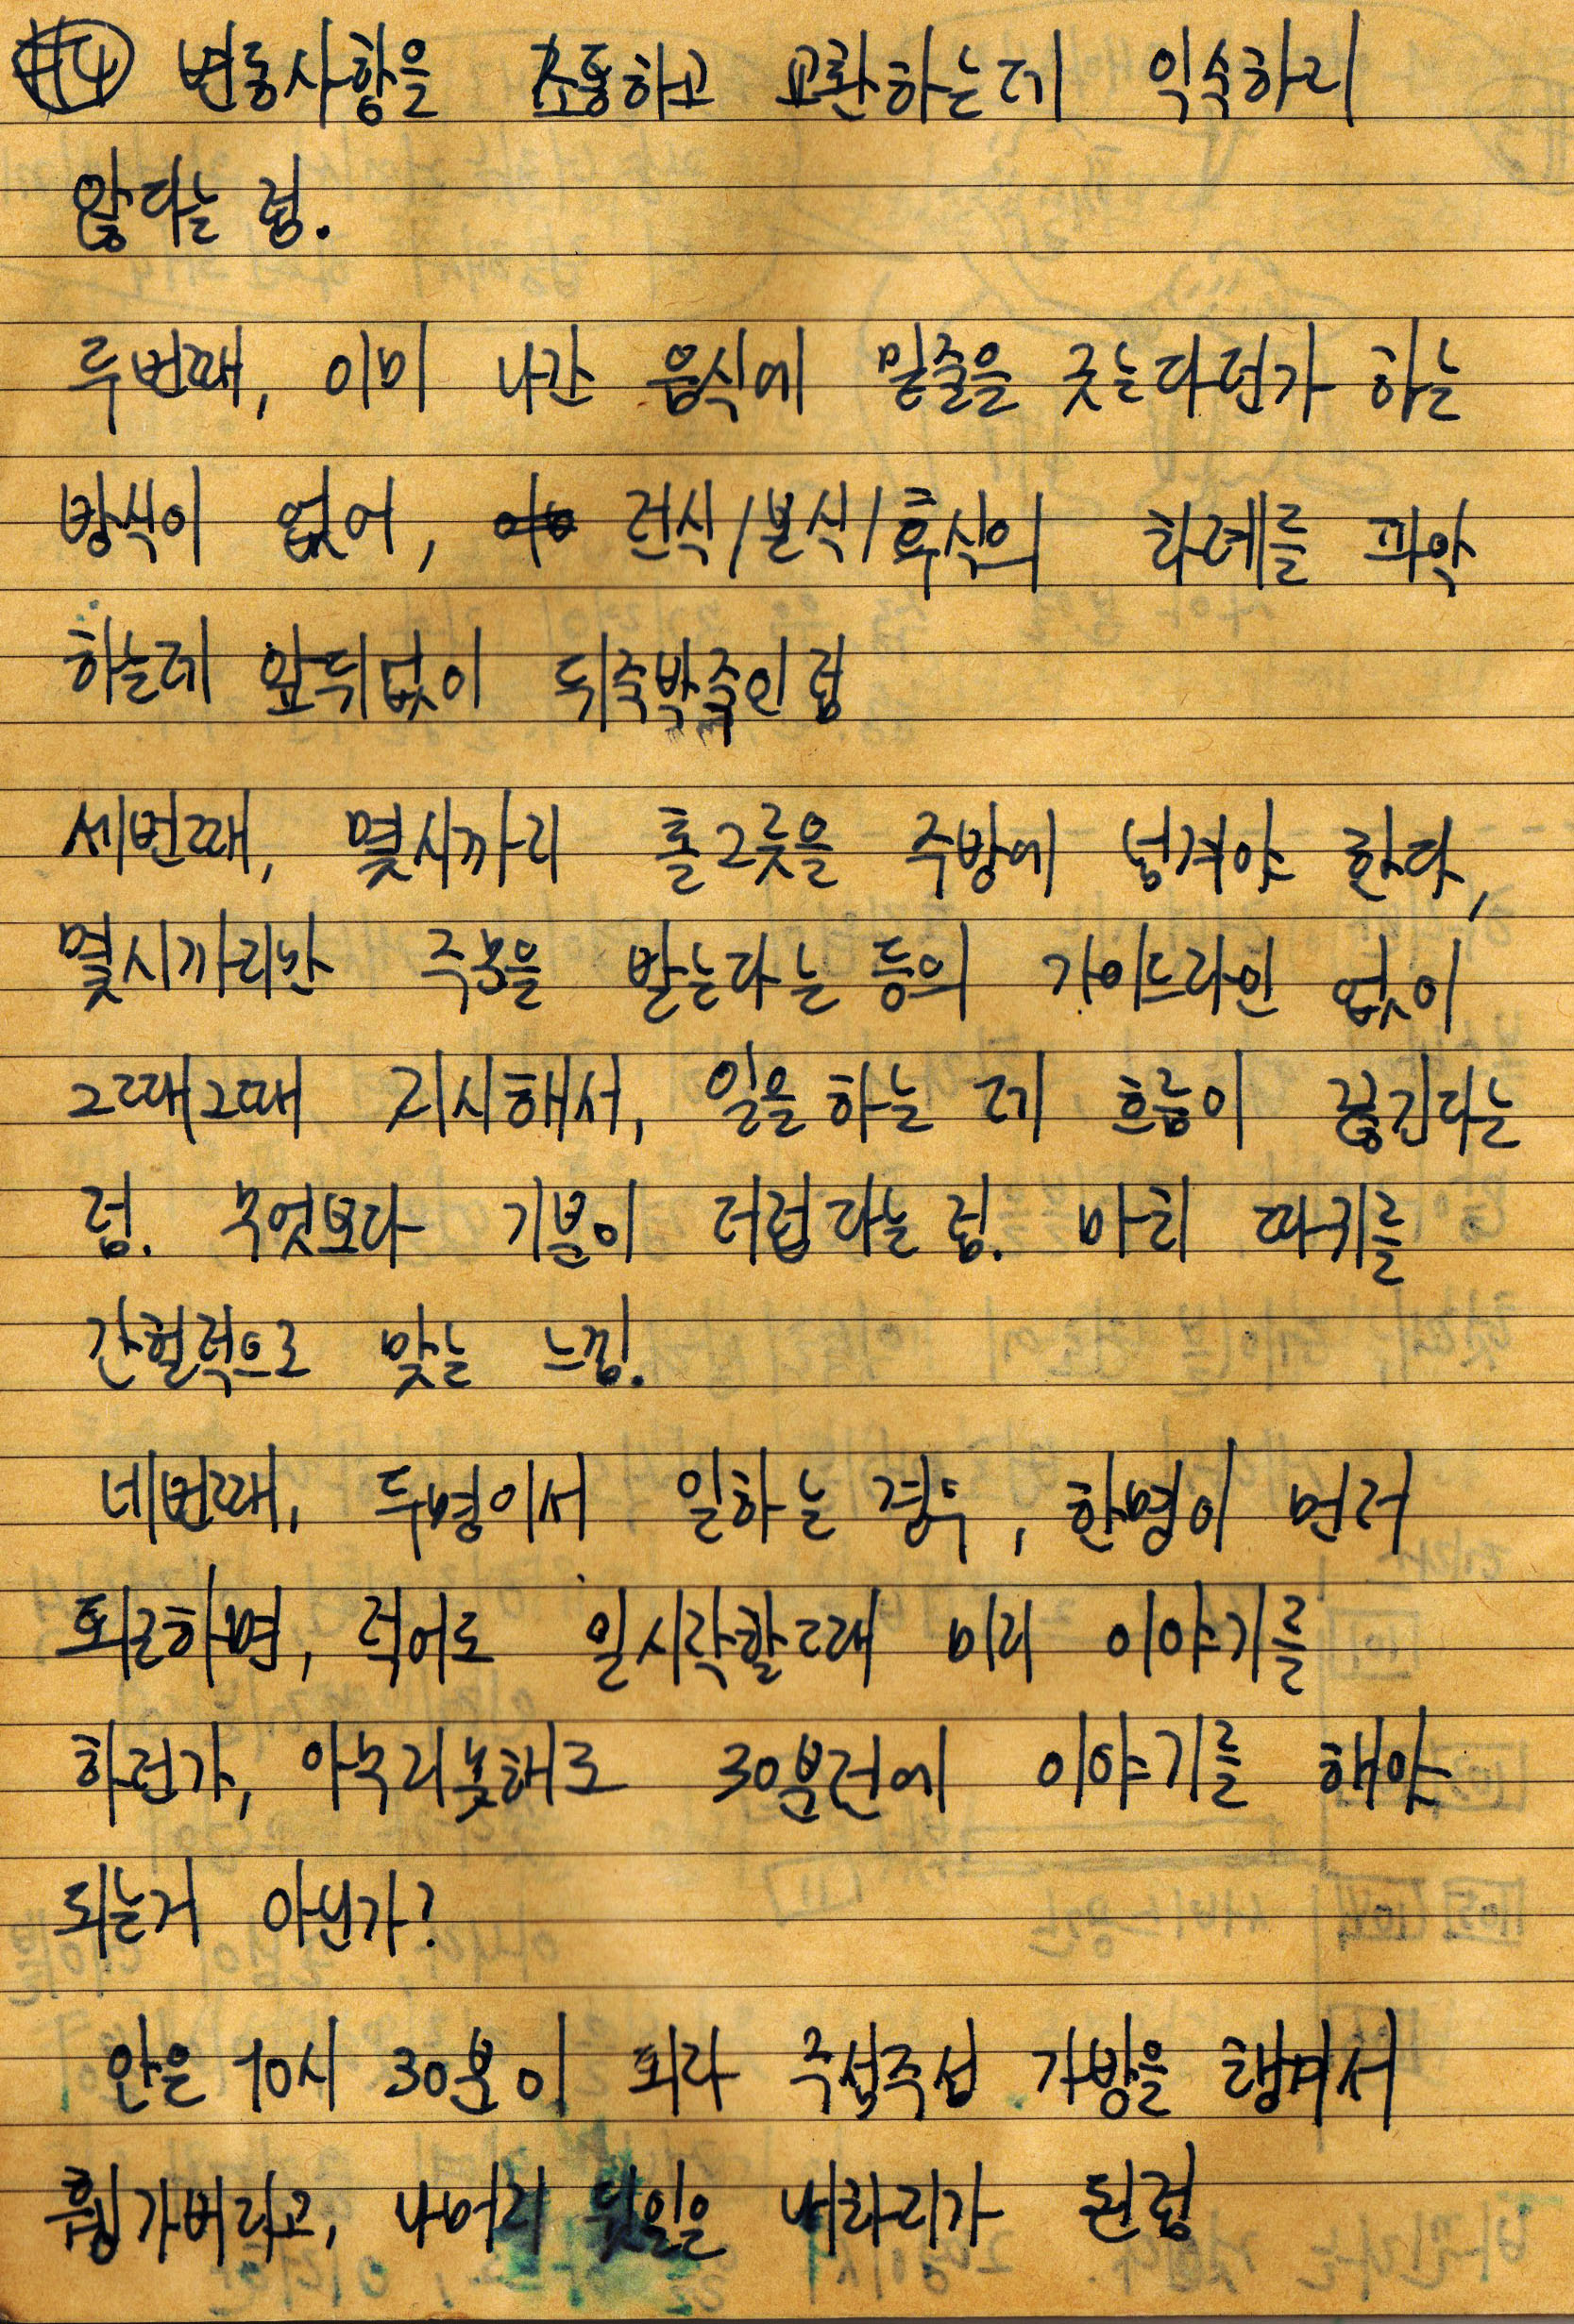 #4 변동사항을 소통하고 교환하는데 익숙하지
않다는 점.
두번째, 이미 나간 음식에 밑줄을 긋는다던가 하는
방식이 없어, 전식/본식/후식의 차례를 파악
하는데 앞뒤없이 뒤죽박죽인 점
세번째, 몇시까지 홀그릇을 주방에 넘겨야 한다,
몇시까지만 주문을 받는다는 등의 가이드라인 없이
그때그때 지시해서, 일을 하는 데 흐름이 끊긴다는
점. 무엇보다 기분이 더럽다는 점. 마치 따귀를
간헐적으로 맞는 느낌.
네번째, 두명이서 일하는 경우, 한명이 먼저
퇴근하면, 적어도 일시작할때 미리 이야기를
하던가, 아무리못해도 30분전에 이야기를 해야
되는거 아닌가?
얀은 10시 30분이 되자 주섬주섬 가방을 챙겨서
휑가버리고, 나머지 뒷일은 내차지가 된점